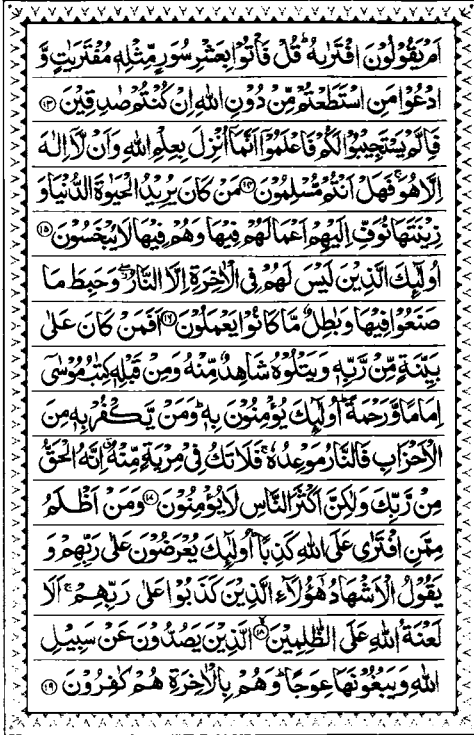 اَمْ يَقُوْلُوْنَ افْتَرٰىهُ ؕ قُلْ فَاْتُوْا بِعَشْرِ سُوَرٍ مِّثْلِهٖ مُفْتَرَيٰتٍ وَّ
ادْعُوْا مَنِ اسْتَطَعْتُمْ مِّنْ دُوْنِ اللّٰهِ اِنْ كُنْتُمْ صٰدِقِيْنَ ﴿۱۳﴾
فَاِلَّمْ يَسْتَجِيْبُوْا لَكُمْ فَاعْلَمُوْۤا اَنَّمَاۤ اُنْزِلَ بِعِلْمِ اللّٰهِ وَاَنْ لَّاۤ اِلٰهَ
اِلَّا هُوَ ۚ فَهَلْ اَنْتُمْ مُّسْلِمُوْنَ ﴿۱۴﴾ مَنْ كَانَ يُرِيْدُ الْحَيٰوةَ الدُّنْيَا وَ
زِيْنَتَهَا نُوَفِّ اِلَيْهِمْ اَعْمَالَهُمْ فِيْهَا وَهُمْ فِيْهَا لَا يُبْخَسُوْنَ ﴿۱۵﴾
اُولٰٓئِكَ الَّذِيْنَ لَيْسَ لَهُمْ فِى الْاٰخِرَةِ اِلَّا النَّارُ ۖ وَحَبِطَ مَا
صَنَعُوْا فِيْهَا وَبٰطِلٌ مَّا كَانُوْا يَعْمَلُوْنَ ﴿۱۶﴾ اَفَمَنْ كَانَ عَلٰى
بَيِّنَةٍ مِّنْ رَّبِّهٖ وَيَتْلُوْهُ شَاهِدٌ مِّنْهُ وَمِنْ قَبْلِهٖ كِتٰبُ مُوْسٰٓى
اِمَامًا وَّرَحْمَةً ؕ اُولٰٓئِكَ يُؤْمِنُوْنَ بِهٖ ؕ وَمَنْ يَّكْفُرْ بِهٖ مِنَ
الْاَحْزَابِ فَالنَّارُ مَوْعِدُهٗ ۚ فَلَا تَكُ فِىْ مِرْيَةٍ مِّنْهُ ۗ اِنَّهُ الْحَقُّ
مِنْ رَّبِّكَ وَلٰكِنَّ اَكْثَرَ النَّاسِ لَا يُؤْمِنُوْنَ ﴿۱۷﴾ وَمَنْ اَظْلَمُ
مِمَّنِ افْتَرٰى عَلَى اللّٰهِ كَذِبًا ؕ اُولٰٓئِكَ يُعْرَضُوْنَ عَلٰى رَبِّهِمْ وَ
يَقُوْلُ الْاَشْهَادُ هٰٓؤُلَآءِ الَّذِيْنَ كَذَبُوْا عَلٰى رَبِّهِمْ ۚ اَلَا
لَعْنَةُ اللّٰهِ عَلَى الظّٰلِمِيْنَ ﴿۱۸﴾ الَّذِيْنَ يَصُدُّوْنَ عَنْ سَبِيْلِ
اللّٰهِ وَيَبْغُوْنَهَا عِوَجًا ؕ وَهُمْ بِالْاٰخِرَةِ هُمْ كٰفِرُوْنَ ﴿۱۹﴾